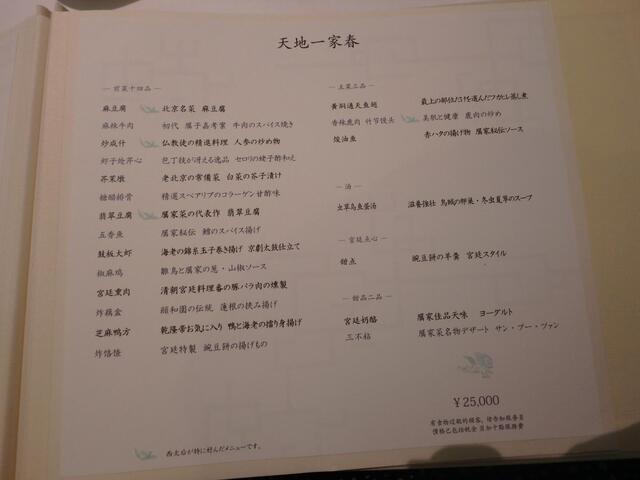 天地一家春
― 前菜十四品 ―
麻豆腐 北京名菜 麻豆腐
麻辣牛肉 初代 厲子嘉考案 牛肉のスパイス焼き
炒咸什 仏教徒の精進料理 人参の炒め物
虾子炝芹心 包丁技が冴える逸品 セロリの蝦子酢和え
芥菜墩 老北京の常備菜 白菜の芥子漬け
糖醋排骨 精選スペアリブのコラーゲン甘酢味
翡翠豆腐 厲家菜の代表作 翡翠豆腐
五香魚 厲家秘伝 鱈のスパイス揚げ
鼓板大虾 海老の錦糸玉子巻き揚げ 京劇太鼓仕立て
椒麻鸡 雛鳥と厲家の葱・山椒ソース
宮廷熏肉 清朝宮廷料理番の豚バラ肉の燻製
炸藕盒 頤和園の伝統 蓮根の挟み揚げ
芝麻鸭方 乾隆帝お気に入り 鴨と海老の擂り身揚げ
炸饹馇 宮廷特製 豌豆餅の揚げもの
西太后が特に好んだメニューです。
― 主菜三品 ―
黄焖通天魚翅 最上の部位だけを選んだフカヒレ蒸し煮
香辣鹿肉 竹节馒头 美肌と健康 鹿肉の炒め
㸆油魚 赤ハタの揚げ物 厲家秘伝ソース
― 汤 ―
虫草烏魚蛋汤 滋養強壮 烏賊の卵巣・冬虫夏草のスープ
― 宮廷点心 ―
甜点 豌豆餅の羊羹 宮廷スタイル
― 甜品二品 ―
宮廷奶酪 厲家佳品天味 ヨーグルト
三不粘 厲家菜名物デザート サン・プー・ツァン
￥25,000
有食物过敏的顾客，请告知服务员
價格已包括税金 另加十點服務費